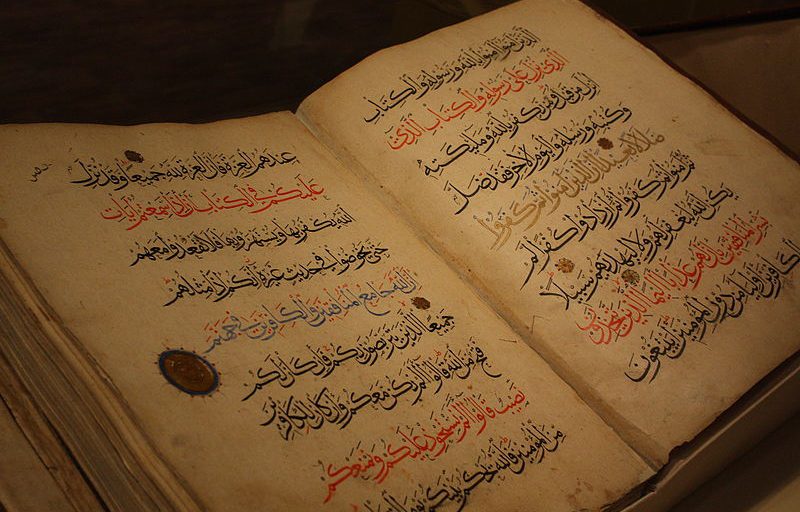 الذين امنوا امنوا بالله ورسوله والكتاب
الذي نزل على رسوله والكتاب الذي
انزل من قبل ومن يكفر بالله وملائكته
وكتبه ورسله واليوم الاخر فقد ضل
ضلالا بعيدا ان الذين امنوا ثم كفروا
ثم امنوا ثم كفروا ثم ازدادوا كفرا لم
يكن الله ليغفر لهم ولا ليهديهم سبيلا
بشر المنافقين بان لهم عذابا اليما الذين يتخذون
الكافرين اولياء من دون المؤمنين ايبتغون
عندهم العزة فان العزة لله جميعا وقد نزل
عليكم في الكتاب ان اذا سمعتم ايات
الله يكفر بها ويستهزا بها فلا تقعدوا معهم
حتى يخوضوا في حديث غيره انكم اذا مثلهم
ان الله جامع المنافقين والكافرين في جهنم
جميعا الذين يتربصون بكم فان كان لكم
فتح من الله قالوا الم نكن معكم وان كان للكافرين
نصيب قالوا الم نستحوذ عليكم ونمنعكم
من المؤمنين فالله يحكم بينكم يوم